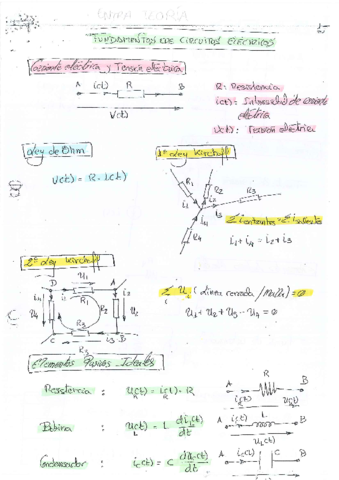 FUNDAMENTOS DE CIRCUITOS ELÉCTRICOS
Corriente eléctrica y Tensión eléctrica
A i(t) R B
V(t)
R: Resistencia
i(t): Intensidad de corriente
eléctrica
V(t): Tensión eléctrica
Ley de Ohm
V(t) = R · i(t)
1ª Ley Kirchoff
R1 R2 R3
i1 i2 i3 i4
R4
i1 + i4 = i2 + i3
2ª Ley Kirchoff
U1
D i1 R1 A
i4 i2
U4 R2 U2
C i3 B
R3
Σ Ui (Línea cerrada / Malla) = 0
U1 + U2 + U3 - U4 = 0
Elementos Pasivos Ideales
Resistencia : UR(t) = iR(t) · R
A R B
iR(t) UR(t)
Bobina : UL(t) = L diL(t)/dt
A L B
UL(t)
Condensador : iC(t) = C dUC(t)/dt
A iC(t) C B